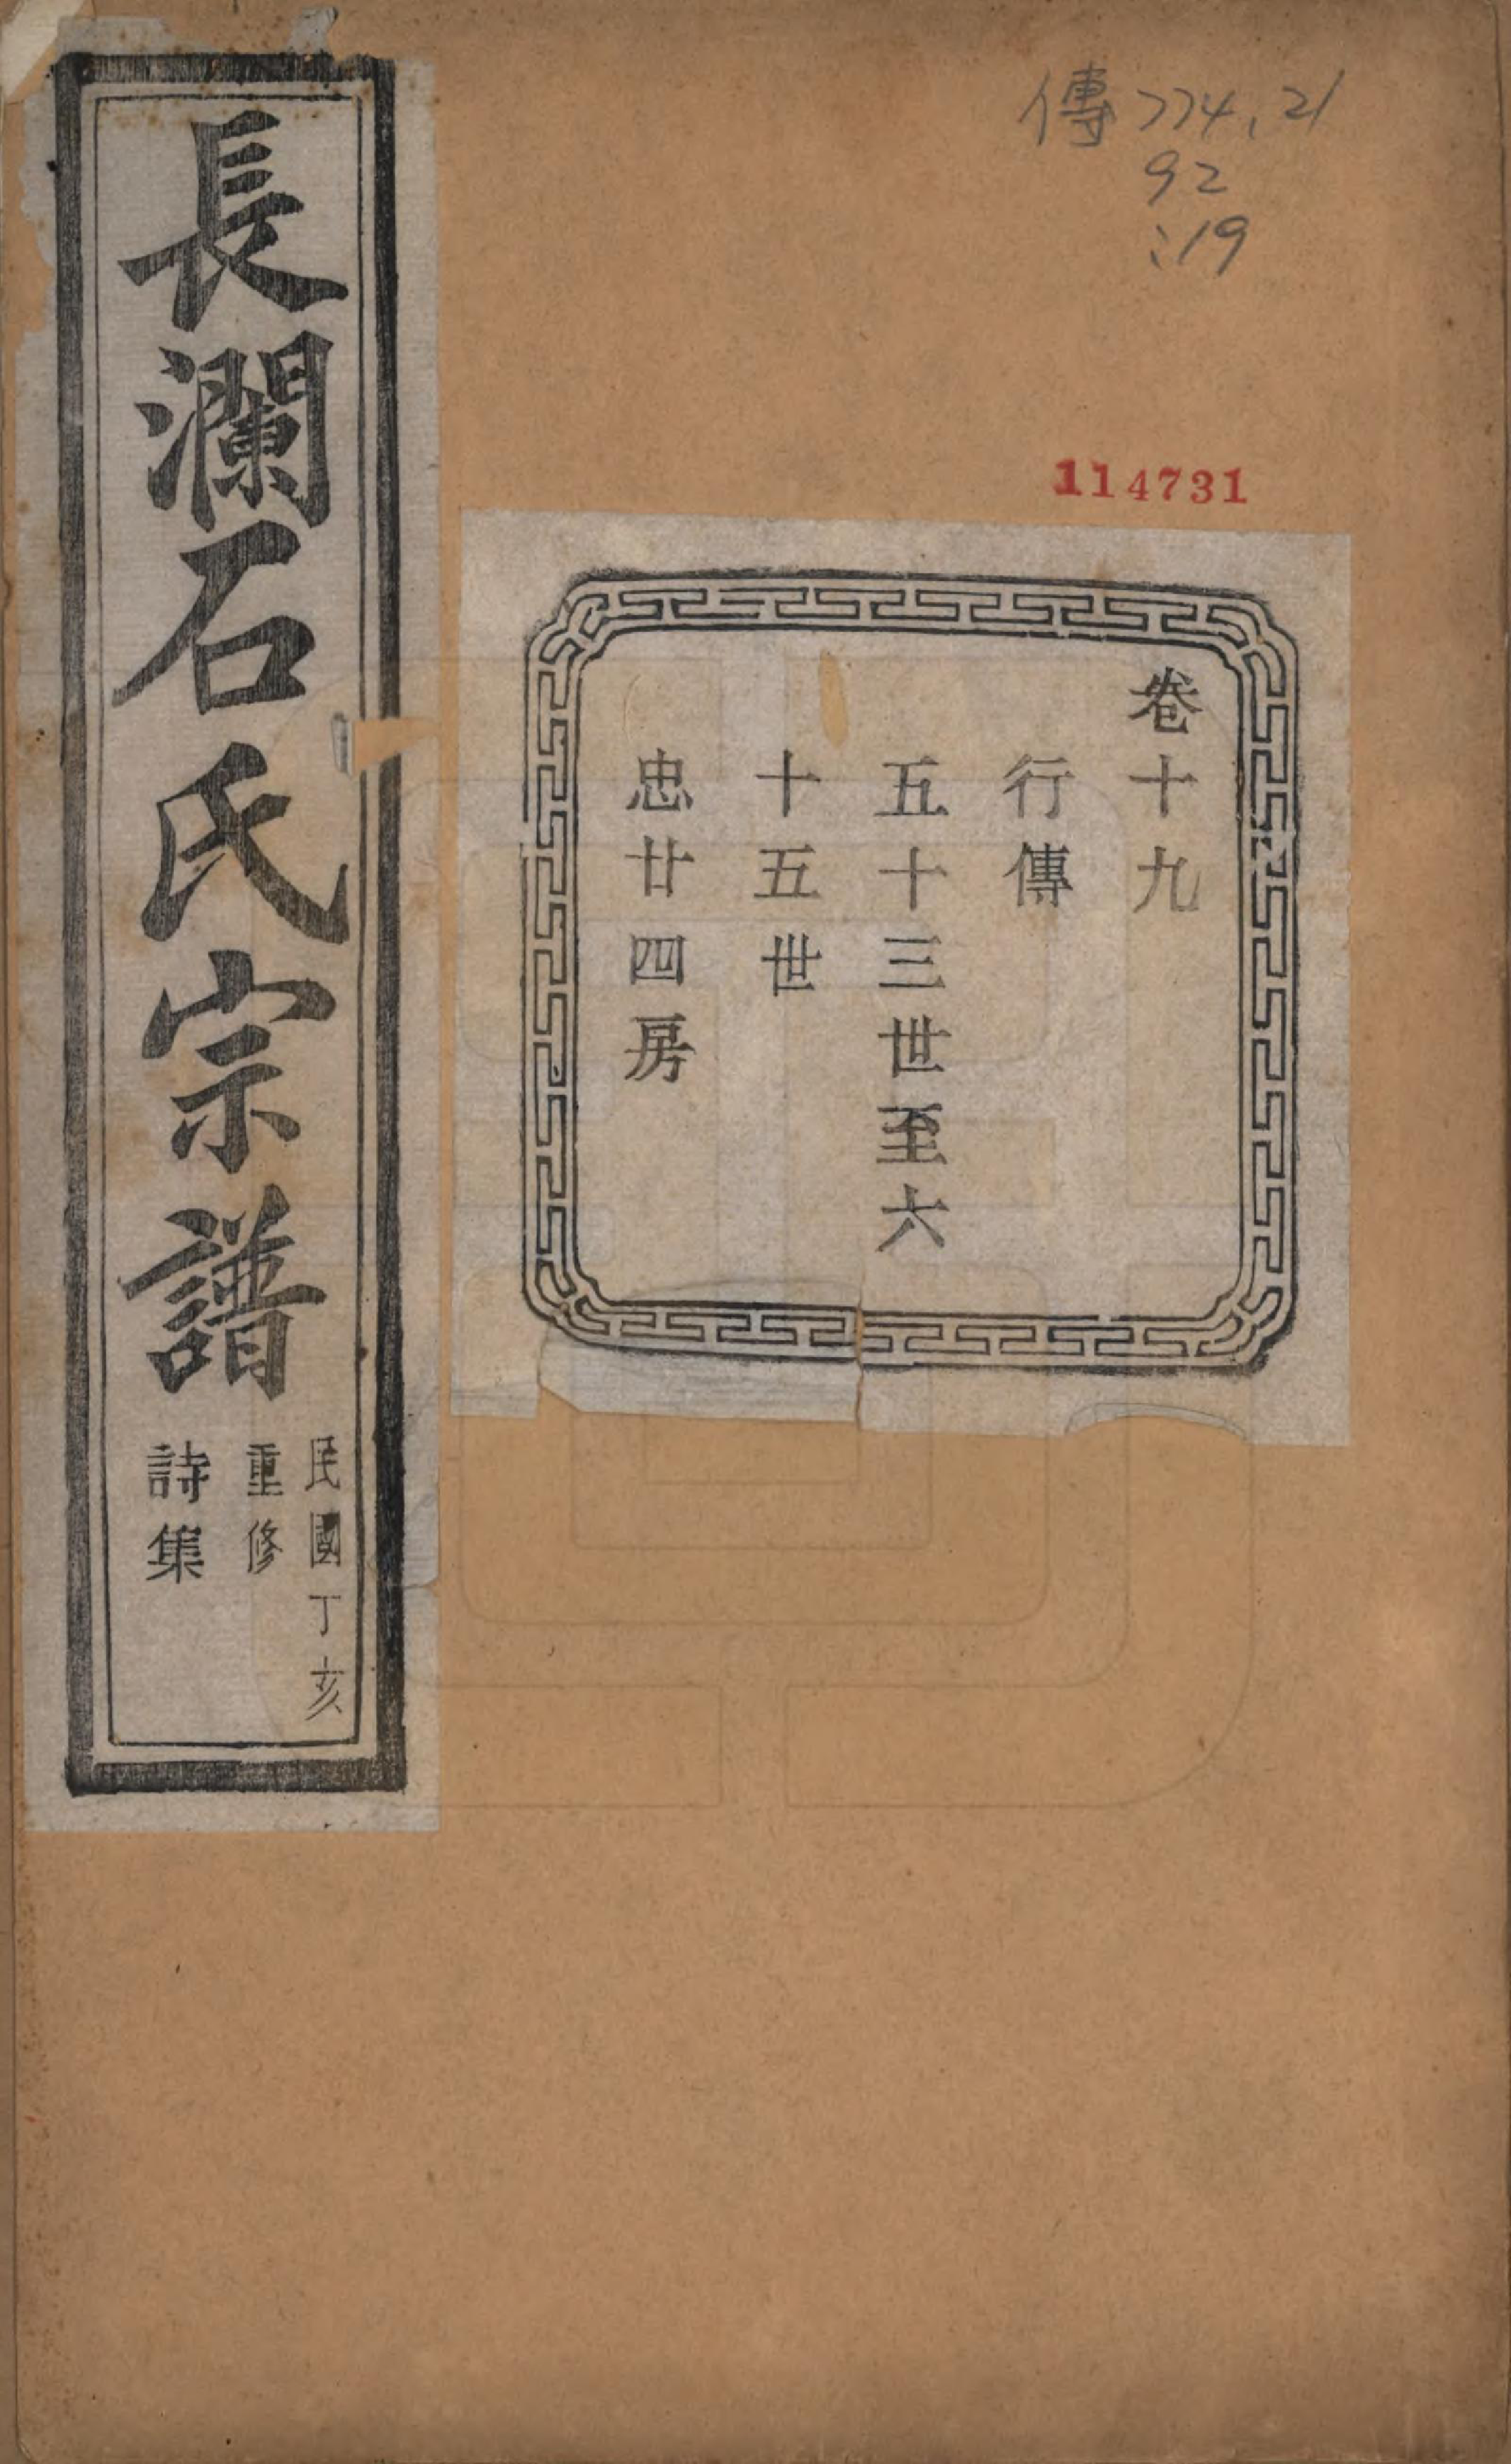 傳774.21
92
:19
114731
卷十九
行傳
五十三世至六
十五世
忠廿四房
長瀾石氏宗譜
民國丁亥
重修
詩集